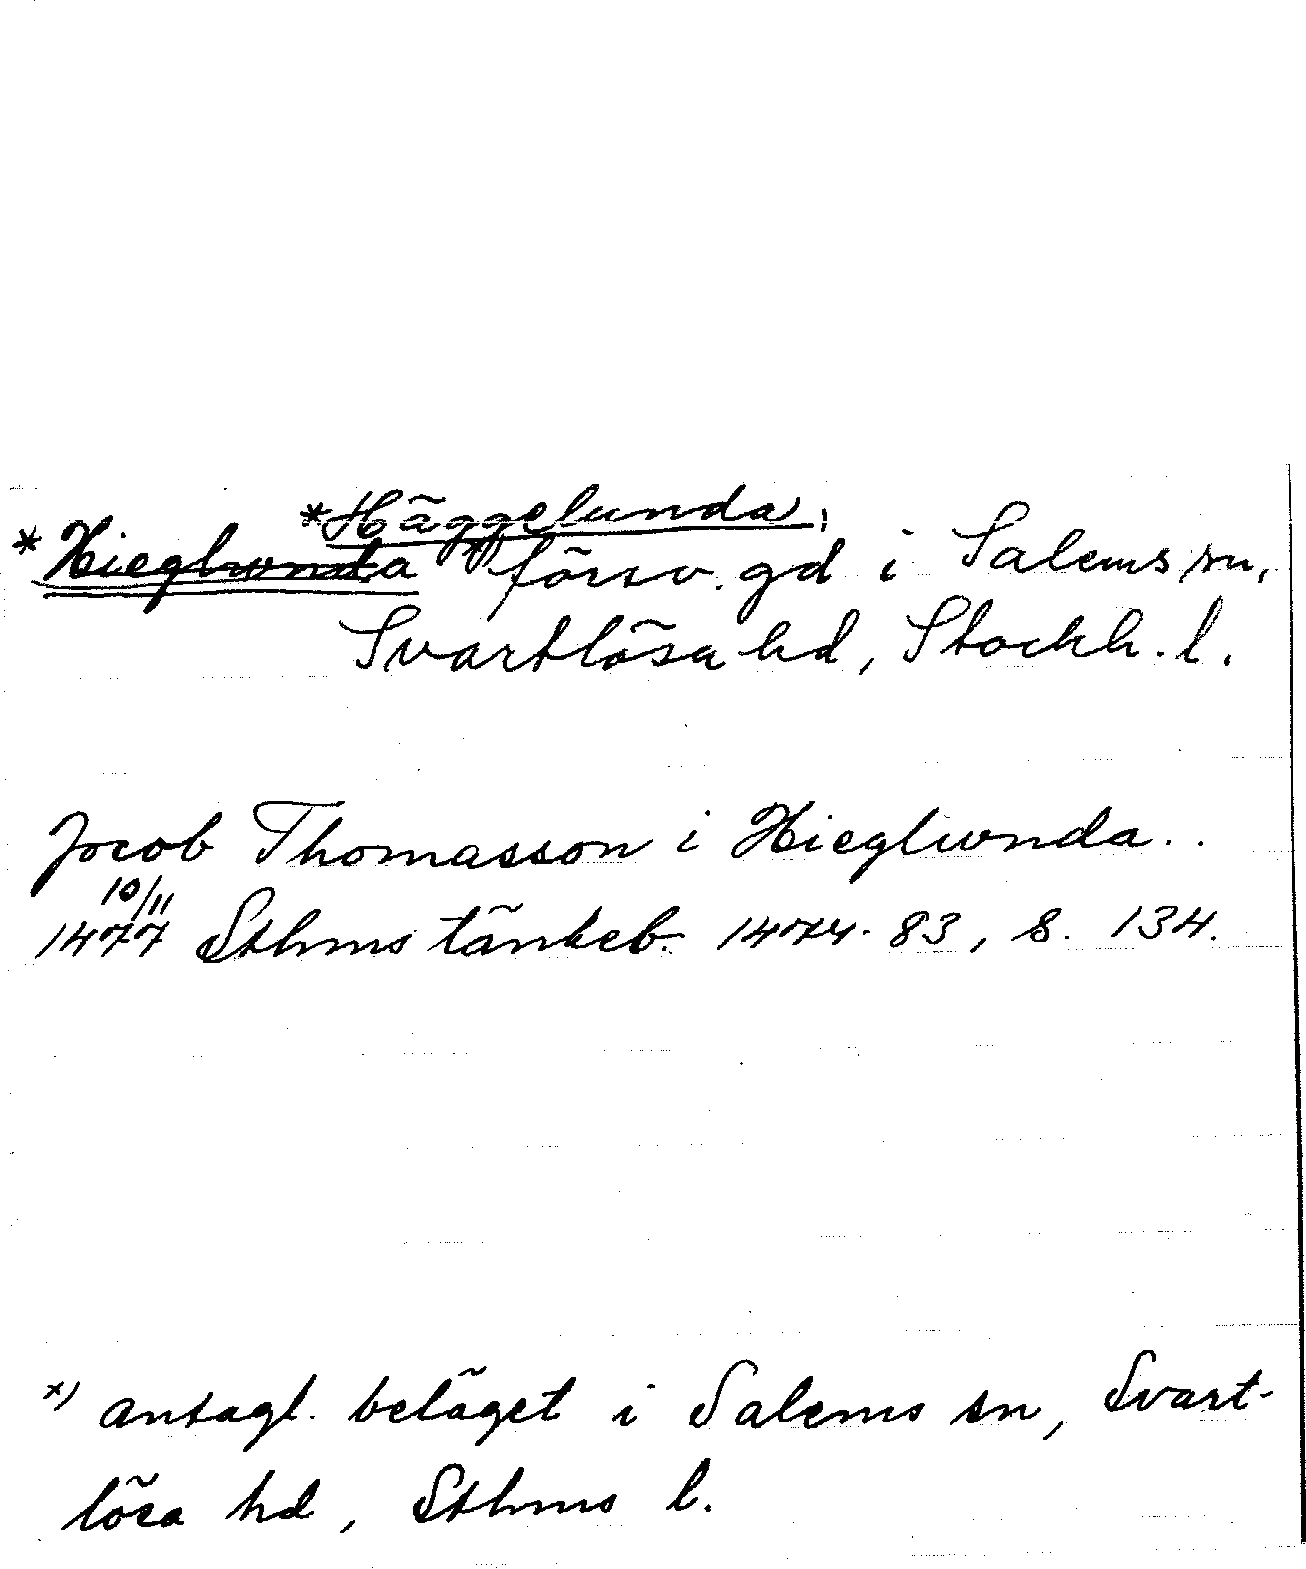 *Häggelunda,
*Hieglwnda x) försv. gd i Salems sn,
Svartlösa hd, Stockh. l.
Jocob Thomasson i Hieglwnda..
10/11
1477 Sthms tänkeb. 1474-83, s. 134.
x) antagl. beläget i Salems sn, Svart-
lösa hd, Sthms l.